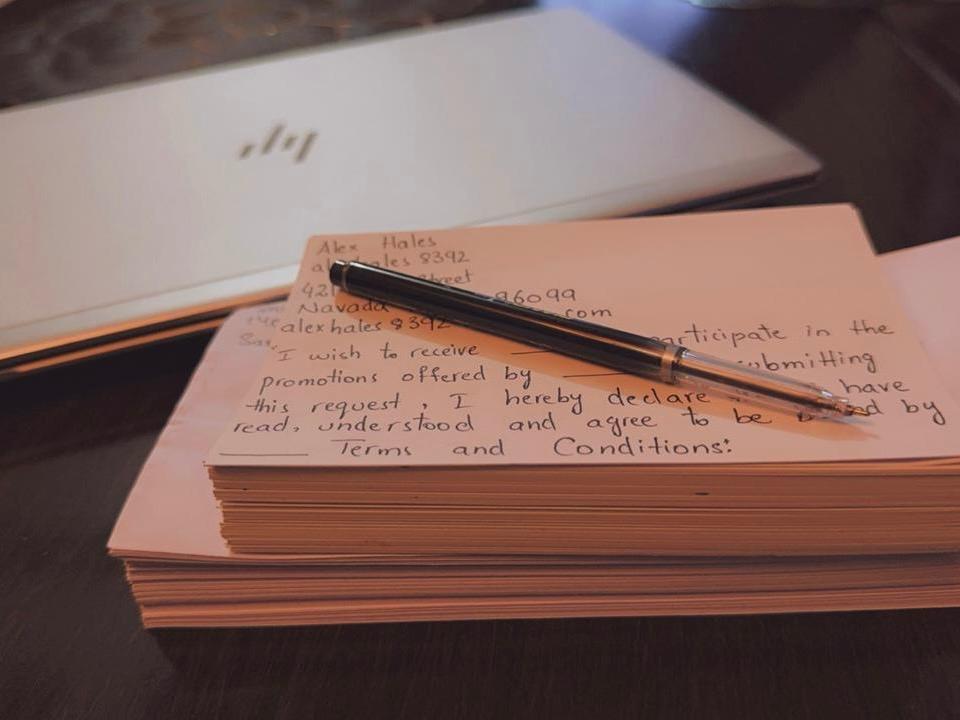 hp
Alex Hales
hales 8392
421 Street
Navada 96099
alexhales 8392 .com
"I wish to receive ____ participate in the
promotions offered by ____ submitting
this request, I hereby declare have
read, understood and agree to be by
____ Terms and Conditions: